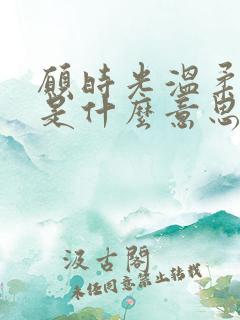 願時光溫柔
是什麼意思
汲古閣
未经同意禁止转载